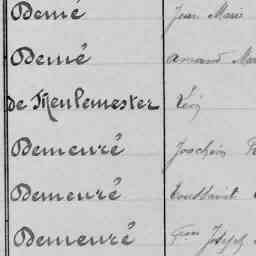 Demé Jean Marie
Demé Armand Mar
de Meulemester Léon
Demeuré Joachim
Demeuré Toussaint
Demeuré Joseph